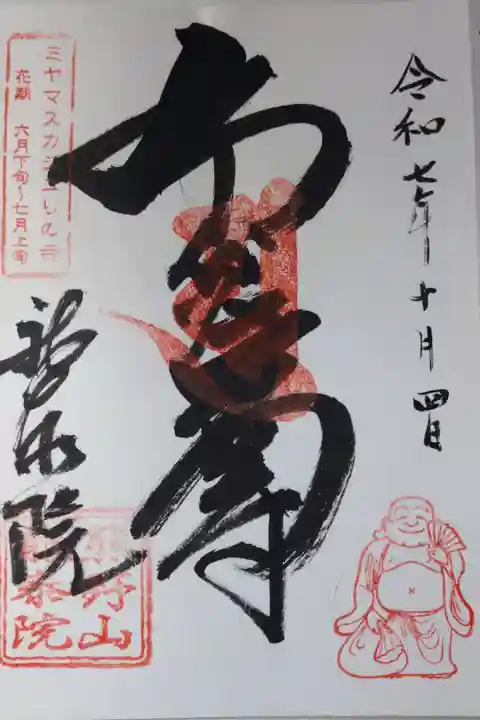 令和七年十月四日
布袋尊
ミヤマスカシユリの寺
花期 六月下旬～七月上旬
院
山
院